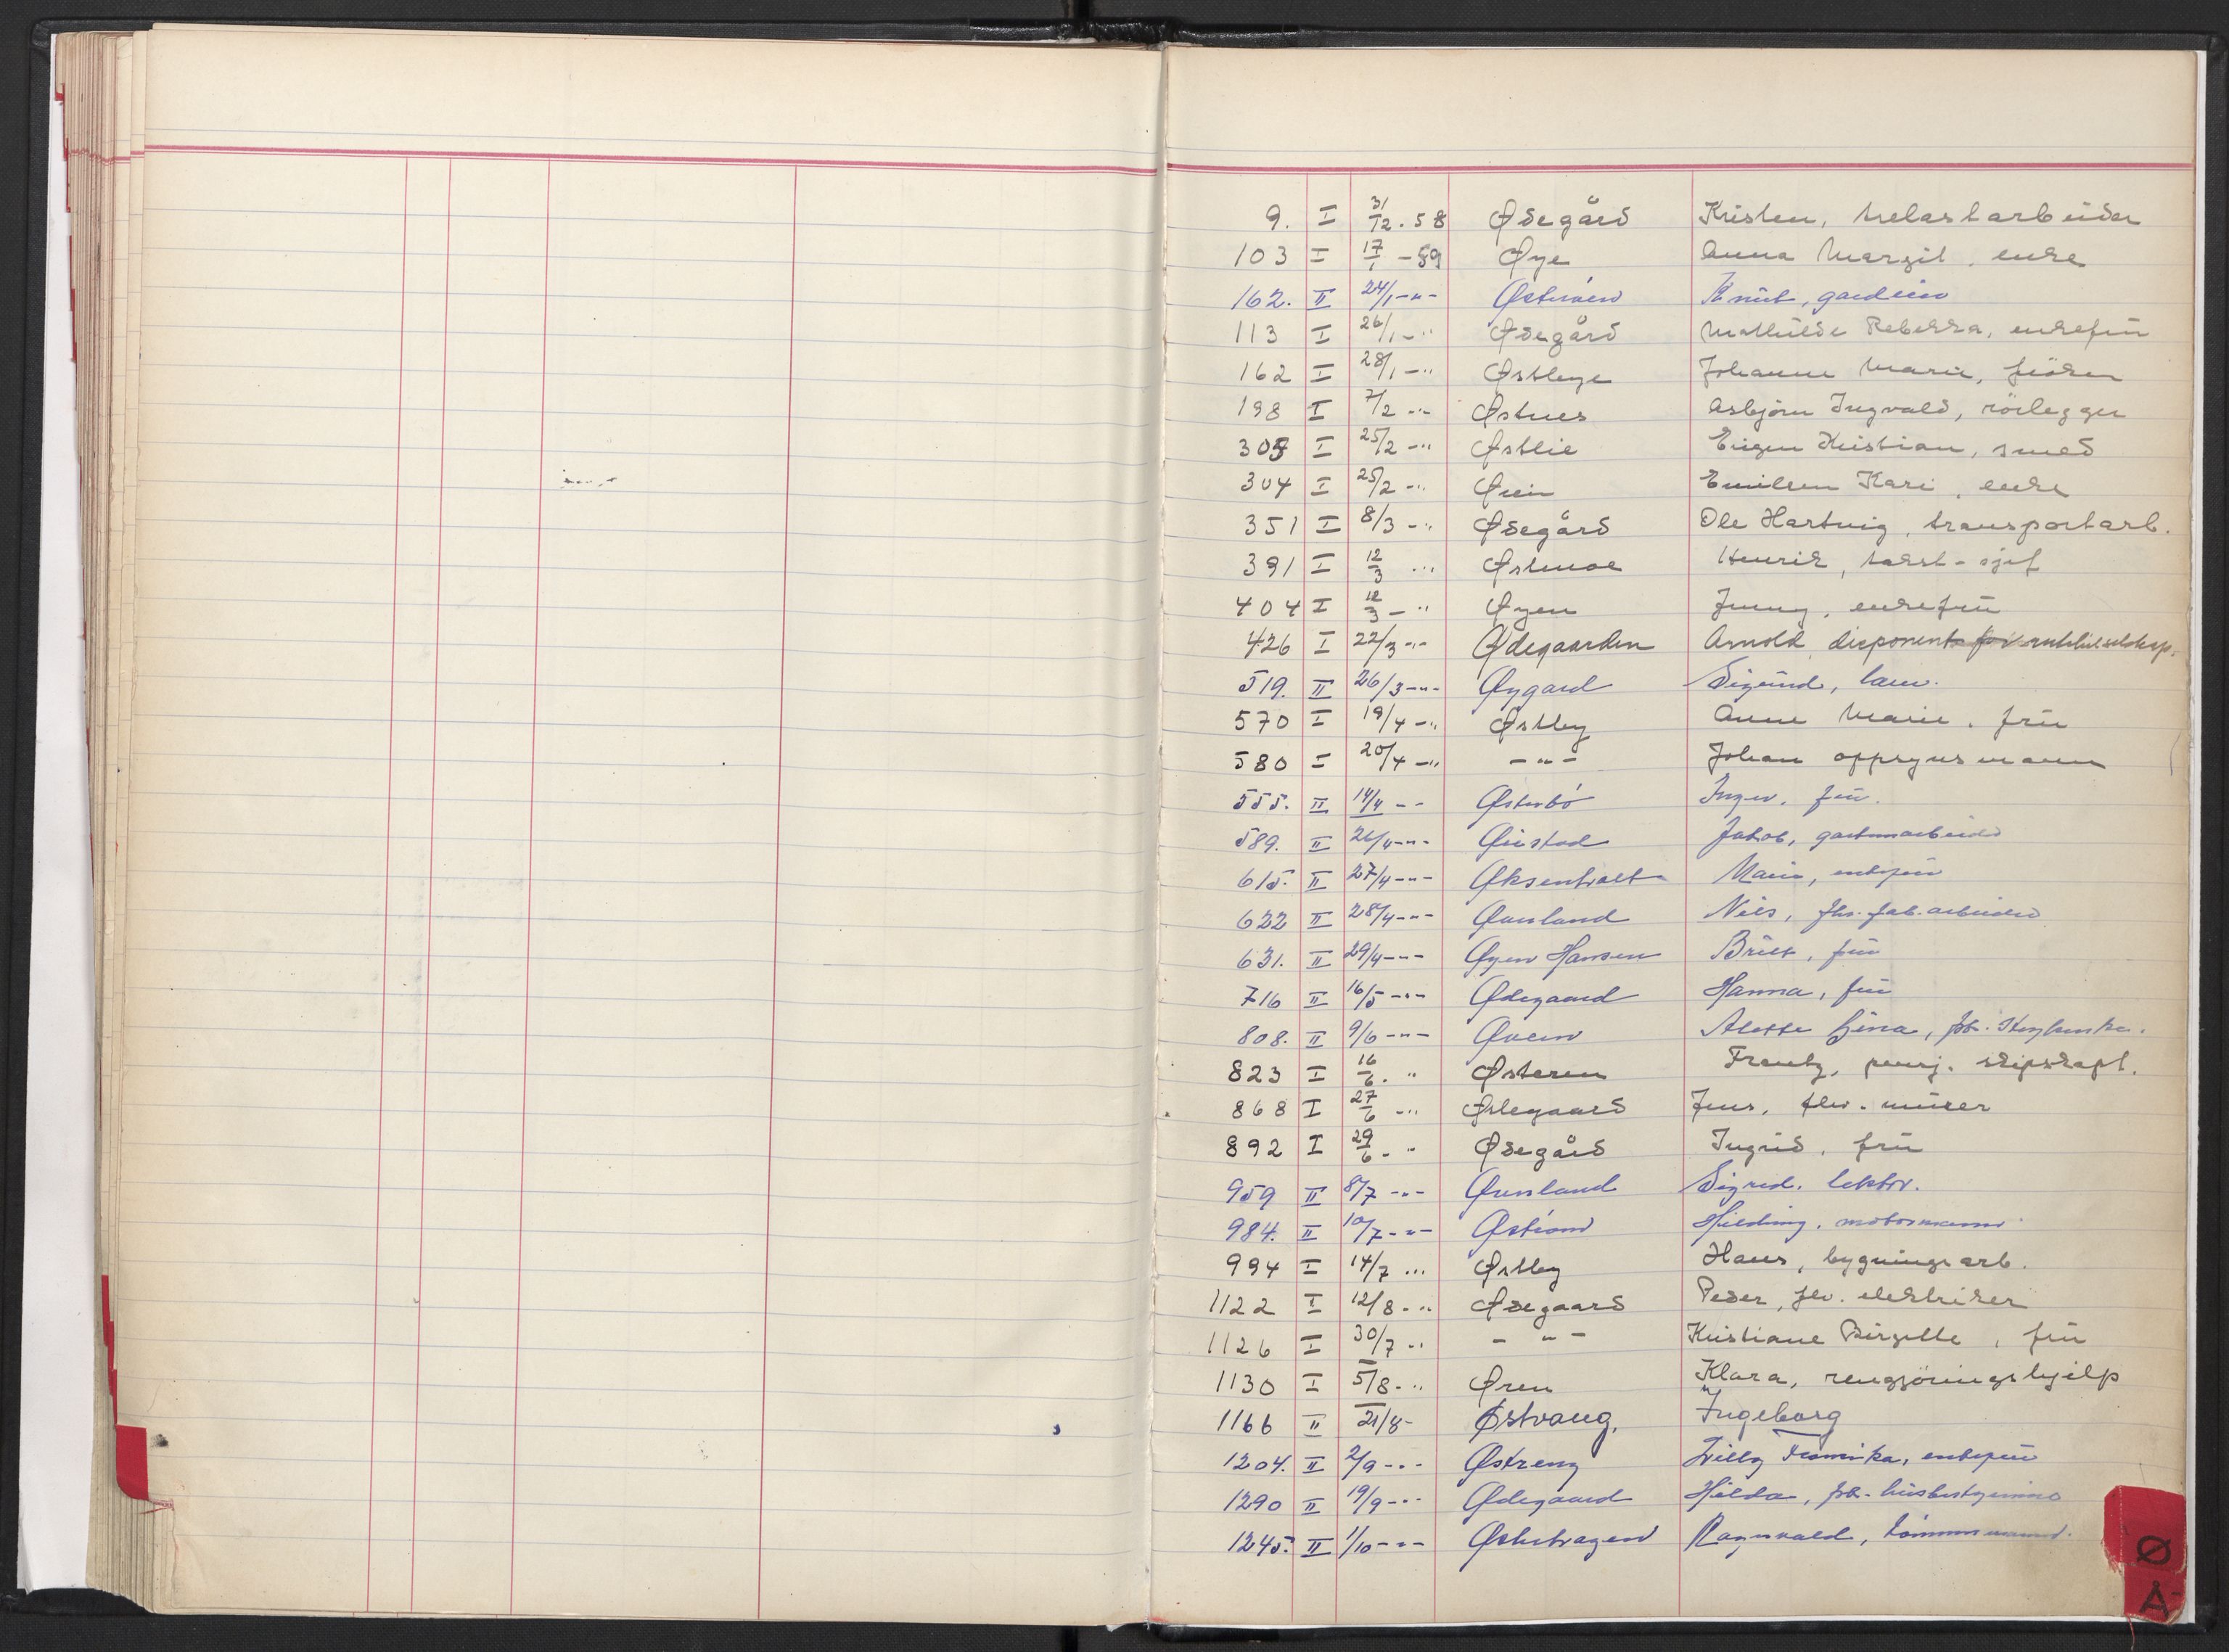 9. I 31/12. 58 Ødegård Kristen, trelastarbeider
103 I 17/1 - 59 Øye Anna Margit, enke
162. II 24/1 -"- Knut, gardein
113 I 26/1 -" Ødegård Mathilde Rebekka, enkefrü
162 I 28/1 -" Johanne Marie, frøken
198 I 7/2 -"- Østnes Asbjørn Ingvald, rørlegger
305 I 25/2 -" Østlie Eugen Kristian, smed
304 I 25/2 -" Øien Emilsen Kari, enke
351 I 8/3 -" Ødegård Ole Hartvig, transportarb.
391 I 12/3 " Østmoe Henrik, takst-sjef
404 I 12/3 - " Øyen Jenny, enkefrü
426 I 22/3 -"- Ødegaarden Arnold disponent for
519. II 26/3 -"- Øygard Sigurd,
570 I 19/4 -" Østby Anne Marie, frü
580 I 20/4 -" - " - Johan oppsynsmann
555. II 14/4 - - Østerbö Inger, frü.
589. II 26/4 -"- Øustad Jakob, gartnerarbeider
615. II 27/4 -"- Øksenholt Marie, enkefrü
622 II 28/4 -"- Øvresland Nils, fhv. fab. arbeider
631. II 29/4 -"- Øyen Hansen Britt, frü
716 II 16/5 -"- Ødegaard Hanna, frü
808. II 9/6 -"- Øveren Alette Gina, fhv.
823 I 16/6. " Østeren Frantz, pensj. skipskapt.
868 I 27/6 -" Ødegaard Jens, fhv. murer
892 I 29/6 - " Ødegård Ingrid, frü
959 II 8/7 -"- Øvresland Sigrid. lektor.
984. II 10/7 -"- Hilding, motormann
994 I 14/7 ... Østby Hans, bygningsarb.
1122 I 12/8 - " Ødegaard Peder, fhv. elektriker
1126 I 30/7 -" - " - Kristiane Birgitte, frü
1130 I 5/8 - " Øren Klara, rengjöringshjelp
1166 II 21/8 - Østvang, Ingeborg
1204. II 2/9 -"- Østreng Willy enkefrü
1290 II 19/9 -"- Ødegaard Hilda, fhv. husbestyrerinne
1245. II 1/10 -"- Østerhagen Ragnvald, tömmermann.
Ø
Å